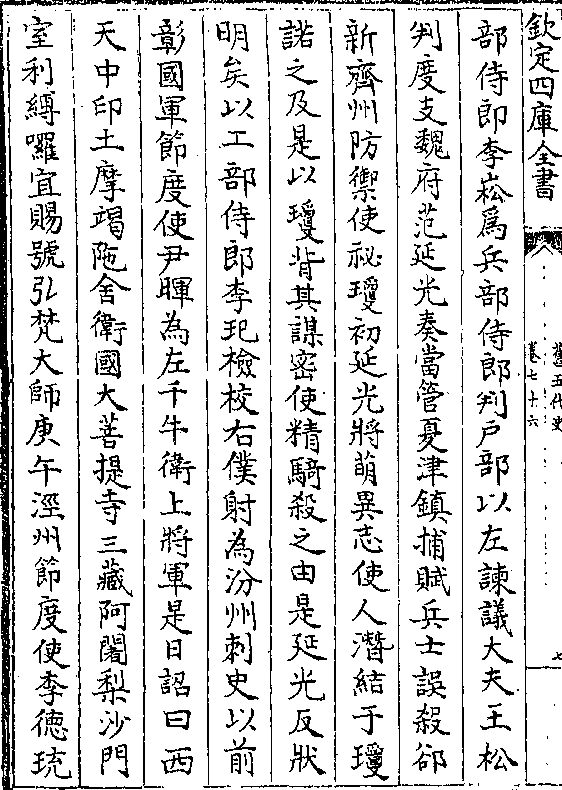 欽定四庫全書
舊五代史
卷七十六
七
部侍郎李崧爲兵部侍郎判戶部以左諫議大夫王松
判度支魏府范延光奏當管夏津鎮捕賊兵士誤殺郤
新齊州防禦使祕瓊初延光將萌異志使人潛結于瓊
諾之及是以瓊背其謀密使精騎殺之由是延光反狀
明矣以工部侍郎李玘檢校右僕射為汾州刺史以前
彰國軍節度使尹暉為左千牛衛上將軍是日詔曰西
天中印土摩竭陁舍衛國大菩提寺三藏阿闍梨沙門
室利縛囉宜賜號弘梵大師庚午涇州節度使李德珫